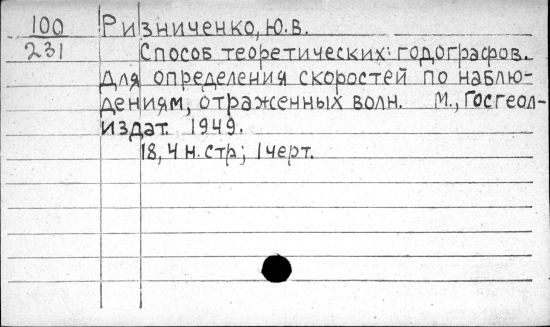 100 Ризниченко, Ю.В.
231 Способ теоретических годографов.
Для определения скоростей по наблю-
дениям, отраженных волн. М., Госгеол-
издат. 1949.
18, 4 н. стр; 1 черт.